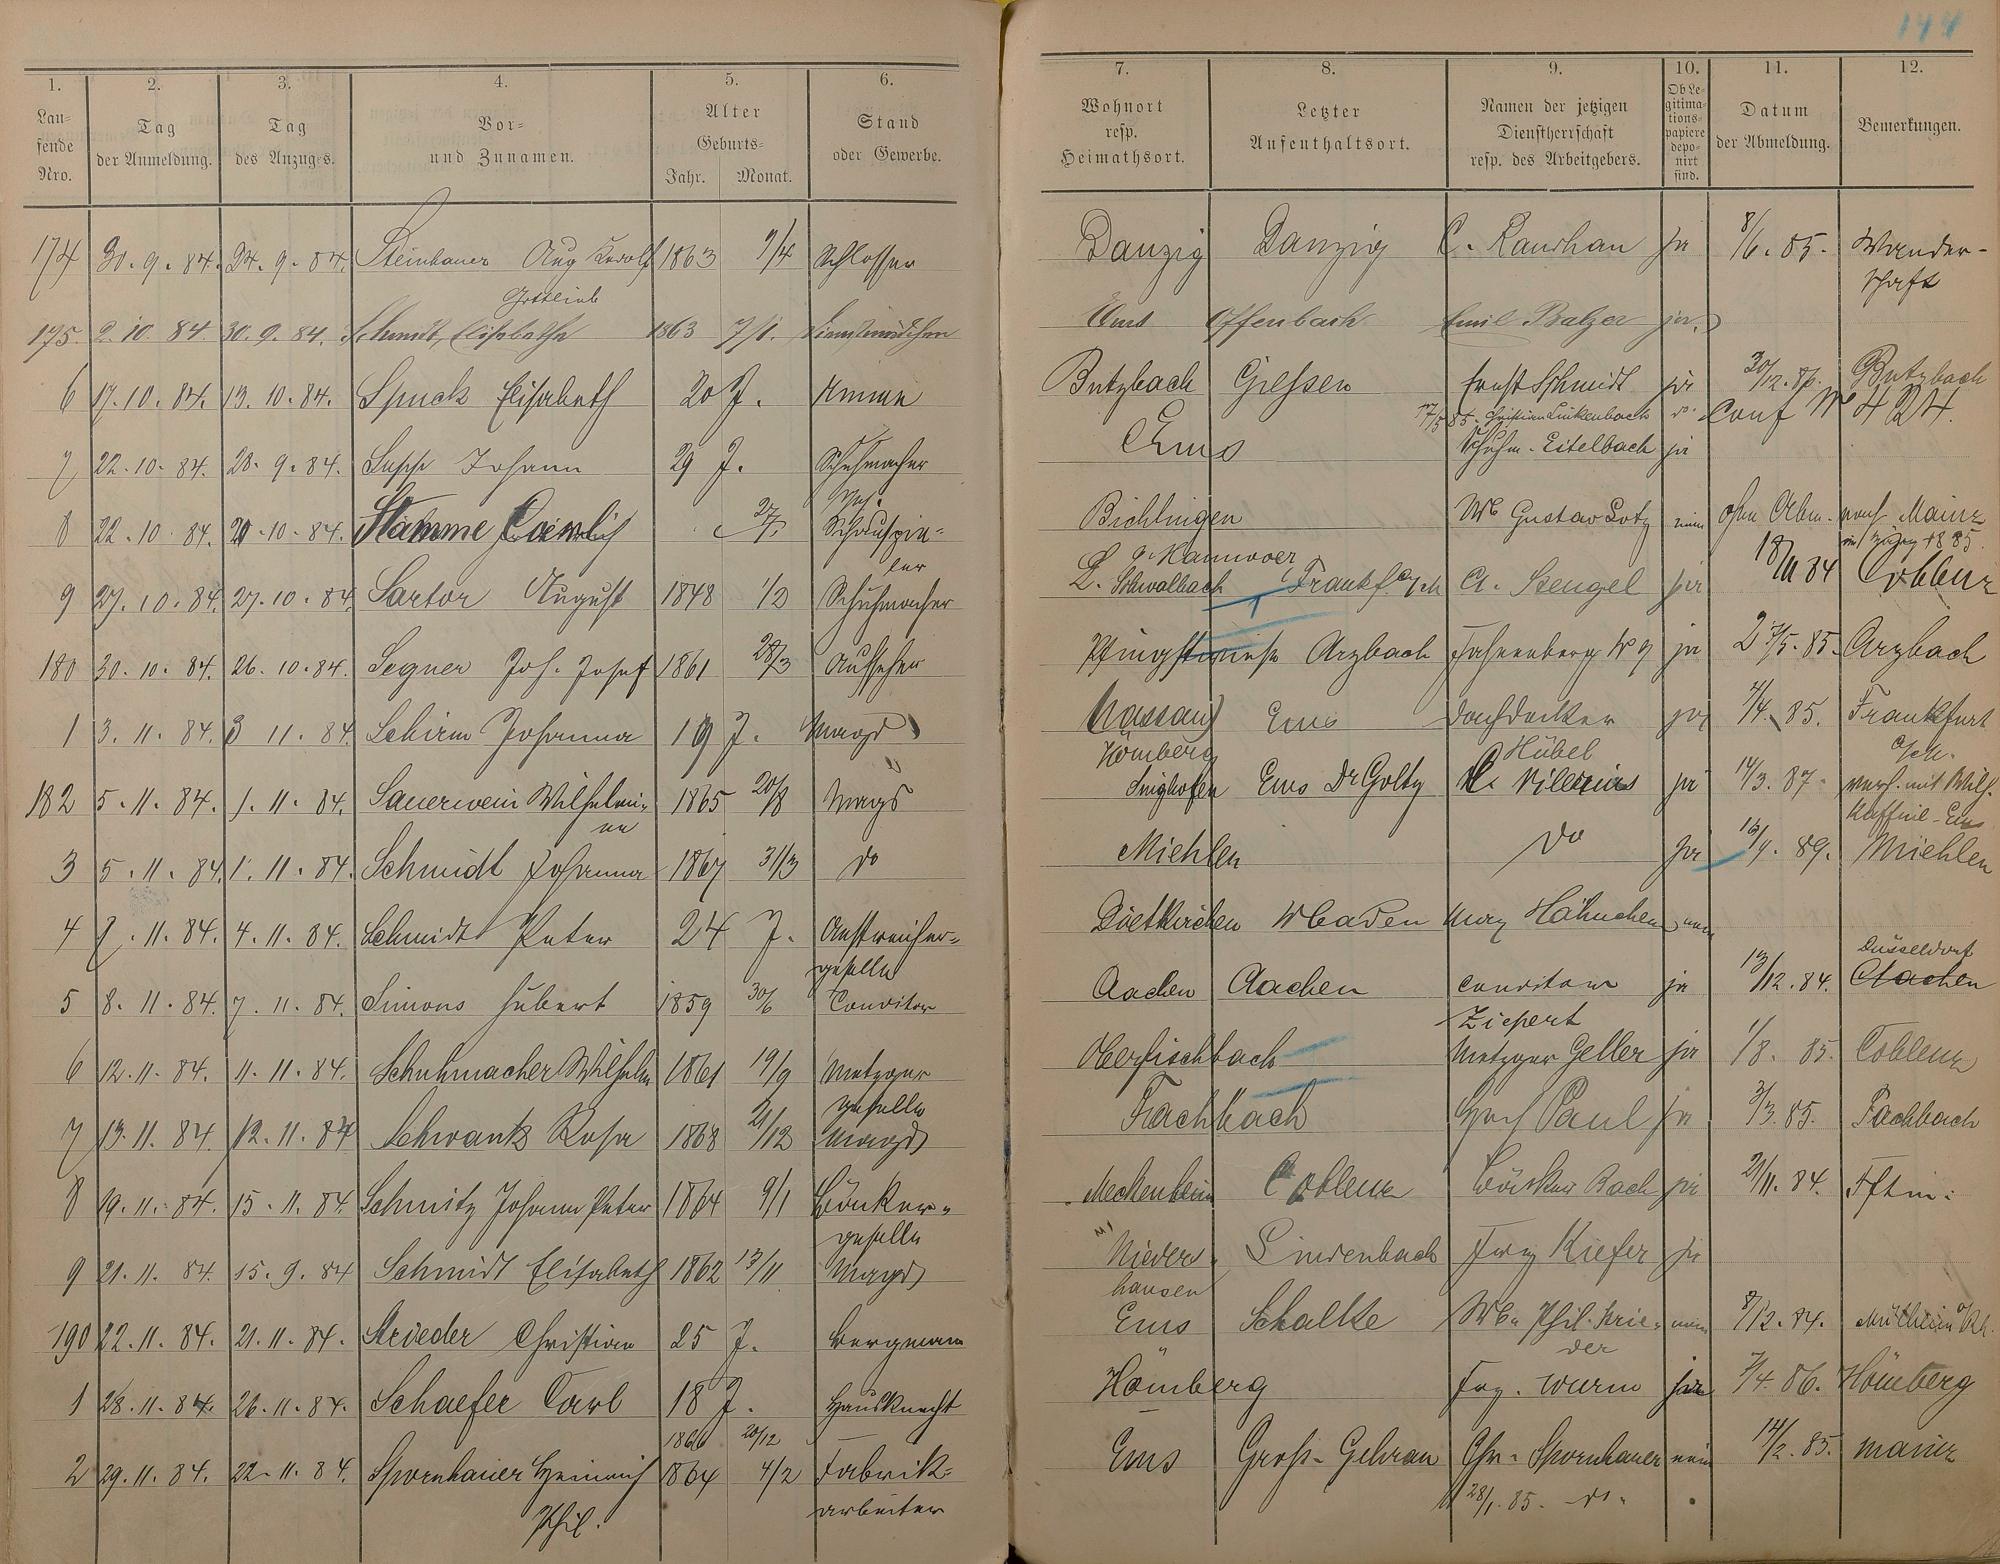 144
1. 2. 3. 4. 5. 6. 7. 8. 9. 10. 11. 12.
Lau-
fende
Nro.
Tag
der Anmeldung.
Tag
des Anzuges.
Vor-
und Zunamen.
Alter
Geburts-
Jahr. Monat.
Stand
oder Gewerbe.
Wohnort
resp.
Heimathsort.
Letzter
Aufenthaltsort.
Namen der jetzigen
Dienstherrschaft
resp. des Arbeitgebers.
Ob Le-
gitima-
tions-
papiere
depo-
nirt
sind.
Datum
der Abmeldung.
Bemerkungen.
174 30.9.84. 24.9.84. Steinhauer Aug 1863 9/4 Schlosser Danzig Danzig C. Raushan ja 8/6.85. Wander-
Gottlieb schaft
175. 2.10.84. 30.9.84. Schmidt, Elisabetha 1863 7/1. Dienstmädchen Ems Offenbach Emil Balzer ja
6 17.10.84. 13.10.84. Spuck Elisabeth 20 J. Amme Butzbach Giessen Ernst Schmidt ja 30/12. Butzbach
17/5 85. Christian Linkenbach do. Conf No 424.
7 22.10.84. 28.9.84. Supp Johann 29 J. Schuhmacher Ems Schuhm. Eitelbach ja
8 22.10.84. 20.10.84. Stamme Heinrich 27/7 Schauspie- Bichlingen Wb Gustav Lotz nein ohne Abm. nach Mainz
ler a. Hannover 1885.
9 27.10.84. 27.10.84. Sartor August 1848 1/2 Schuhmacher L. Schwalbach Frankf. a/M A. Stengel ja 18/11 84 Coblenz
180 30.10.84. 26.10.84. Segner Joh. Josef 1861 28/3 Aufseher Pfingstwiese Arzbach Fahnenberg No 9 ja 2 /5.85. Arzbach
1 3.11.84. 3 11.84. Schirm Johanna 19 J. Magd Nassau Ems Dachdecker ja /4.85. Frankfurt
Hömberg Hübel a/M.
182 5.11.84. 1.11.84. Sauerwein Wilhelmi- 1865 20/8 Magd Singhofen Ems Dr Goltz C. Villenius ja 14/3.87. verh. mit Wilh.
ne Kaffine-Ems
3 5.11.84. 1.11.84. Schmidt Johanna 1867 31/3 do Miehlen do ja 89. Miehlen
4 7.11.84. 4.11.84. Schmidt Peter 24 J. Anstreicher- Dietkirchen Wbaden Hähnchen nein
geselle Düsseldorf
5 8.11.84. 7.11.84. Simons Hubert 1859 30/6 Conditor Aachen Aachen Conditor ja 13/12.84. Aachen
Ziepert
6 12.11.84. 11.11.84. Schuhmacher Wilhelm 1861 19/9 Metzger Oberfischbach Metzger Geller ja 1/8. 85. Coblenz
geselle
7 13.11.84. 12.11.84 Schwank Rosa 1868 21/12 Magd Fachbach Paul ja 3/3.85. Fachbach
8 19.11.84. 15.11.84. Schmitz Johann Peter 1864 9/1 Bäcker- Meckenheim Coblenz Bäcker Bach ja 21/11.84.
geselle
9 21.11.84. 15.9.84 Schmidt Elisabeth 1862 13/11 Magd Nieder- Lindenbach Kiefer ja
hausen
190 22.11.84. 21.11.84. Strieder Christian 25 J. Bergmann Ems Schalke Wb. Phil. Strie- nein 8/12.84. Mülheim a/Rh.
der
1 28.11.84. 26.11.84. Schaefer Carl 18 J. Hausknecht Hömberg Wurm ja 7/4.86. Hömberg
1866 20/12
2 29.11.84. 22.11.84. Spornhauer Heinrich 1864 4/2 Fabrik- Ems Groß-Gehrau Chr. Spornhauer nein 14/2.85. Mainz
Phil. arbeiter 28/1.85. do.